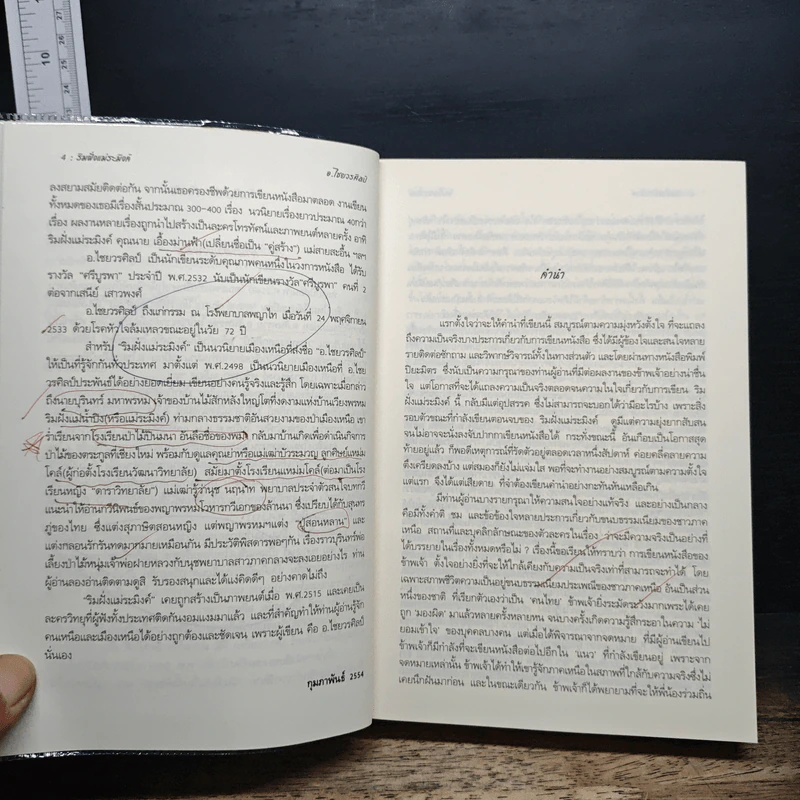 10
4 : ริมฝั่งแม่ระมิงค์
อ.ไชยวรศิลป์
ลงสยามสมัยติดต่อกัน จากนั้นเธอครองชีพด้วยการเขียนหนังสือมาตลอด งานเขียน
ทั้งหมดของเธอมีเรื่องสั้นประมาณ 300-400 เรื่อง นวนิยายเรื่องยาวประมาณ 40กว่า
เรื่อง ผลงานหลายเรื่องถูกนำไปสร้างเป็นละครโทรทัศน์และภาพยนต์หลายครั้ง อาทิ
ริมฝั่งแม่ระมิงค์ คุณนาย เอื้องม่านฟ้า(เปลี่ยนชื่อเป็น "คู่สร้าง") แม่สายสะอื้น ฯลฯ
อ.ไชยวรศิลป์ เป็นนักเขียนระดับคุณภาพคนหนึ่งในวงการหนังสือ ได้รับ
รางวัล "ศรีบูรพา" ประจำปี พ.ศ.2532 นับเป็นนักเขียนรางวัล"ศรีบูรพา" คนที่ 2
ต่อจากเสนีย์ เสาวพงศ์
อ.ไชยวรศิลป์ ถึงแก่กรรม ณ โรงพยาบาลพญาไท เมื่อวันที่ 24 พฤศจิกายน
2533 ด้วยโรคหัวใจล้มเหลวขณะอยู่ในวัย 72 ปี
สำหรับ "ริมฝั่งแม่ระมิงค์" เป็นนวนิยายเมืองเหนือที่ส่งชื่อ "อ.ไชยวรศิลป์"
ให้เป็นที่รู้จักกันทั่วประเทศ มาตั้งแต่ พ.ศ.2498 เป็นนวนิยายเมืองเหนือที่ อ.ไช
ยวรศิลป์ประพันธ์ได้อย่างยอดเยี่ยม เขียนอย่างคนรู้จริงและรู้สึก โดยเฉพาะเมื่อกล่าว
ถึงนายบุรินทร์ มหาพรหม เจ้าของบ้านไม้สักหลังใหญ่โตที่งดงามแห่งบ้านเวียงพรหม
ริมฝั่งแม่น้ำปิง(หรือแม่ระมิงค์) ท่ามกลางธรรมชาติอันสวยงามของป่าเมืองเหนือ เขา
ร่ำเรียนจากโรงเรียนป่าไม้ปินมนา อันลือชื่อของพม่า กลับมาบ้านเกิดเพื่อดำเนินกิจการ
ป่าไม้ของตระกูลที่เชียงใหม่ พร้อมกับดูแลคุณย่าหรือแม่เฒ่าบัวระมวญ ลูกศิษย์แหม่ม
โคล์(ผู้ก่อตั้งโรงเรียนวัฒนาวิทยาลัย) สมัยมาตั้งโรงเรียนแหม่มโคล์(ต่อมาเป็นโรง
เรียนหญิง "ดาราวิทยาลัย") แม่เฒ่ารู้จานุช นฤนาท พยาบาลประจำตัวสนใจบทกวี
แนะนำให้อ่านกวีนิพนธ์ของพญาพรหมโวหารกวีเอกของล้านนา ซึ่งเปรียบได้กับสุนทร
ภู่ของไทย ซึ่งแต่งสุภาษิตสอนหญิง แต่พญาพรหมฯแต่ง "ปู่สอนหลาน" และ
แต่งกลอนรักรันทดมากมายเหมือนกัน มีประวัติพิสดารพอๆกัน เรื่องราวบุรินทร์พ่อ
เลี้ยงป่าไม้หนุ่มเจ้าพ่อฝ่ายหลวงกับนุชพยาบาลสาวภาคกลางจะลงเอยอย่างไร ท่าน
ผู้อ่านลองอ่านติดตามดูสิ รับรองสนุกและได้แง่คิดดีๆ อย่างคาดไม่ถึง
"ริมฝั่งแม่ระมิงค์" เคยถูกสร้างเป็นภาพยนต์เมื่อ พ.ศ.2515 และเคยเป็น
ละครวิทยุที่ผู้ฟังทั่วประเทศติดกันงอมแงมมาแล้ว และที่สำคัญทำให้ท่านผู้อ่านรู้จัก
คนเหนือและเมืองเหนือได้อย่างถูกต้องและชัดเจน เพราะผู้เขียน คือ อ.ไชยวรศิลป์
นั่นเอง
กุมภาพันธ์ 2554
คำนำ
แรกตั้งใจว่าจะให้คำนำที่เขียนนี้ สมบูรณ์ตามความมุ่งหวังตั้งใจ ที่จะแถลง
ถึงความเป็นจริงบางประการเกี่ยวกับการเขียนหนังสือ ซึ่งได้มีผู้ข้องใจและสนใจหลาย
รายติดต่อซักถาม และวิพากษ์วิจารณ์ทั้งในทางส่วนตัว และโดยผ่านทางหนังสือพิมพ์
ปิยะมิตร ซึ่งนับเป็นความกรุณาของท่านผู้อ่าน ที่มีต่อผลงานของข้าพเจ้าอย่างน่าชื่น
ใจ แต่โอกาสที่จะได้แถลงความเป็นจริงตลอดจนความในใจเกี่ยวกับการเขียน ริม
ฝั่งแม่ระมิงค์ นี้ กลับมีแต่อุปสรรค ซึ่งไม่สามารถจะบอกได้ว่ามีอะไรบ้าง เพราะสิ่ง
รอบตัวขณะที่กำลังเขียนตอนจบของ ริมฝั่งแม่ระมิงค์ ดูมีแต่ความยุ่งยากสับสน
จนไม่อาจจะนั่งลงจับปากกาเขียนหนังสือได้ กระทั่งขณะนี้ อันเกือบเป็นโอกาสสุด
ท้ายอยู่แล้ว ก็พอดีเหตุการณ์ที่รัดตัวอยู่ตลอดเวลาหนึ่งสัปดาห์ ค่อยคลี่คลายความ
ตึงเครียดลงบ้าง แต่สมองก็ยังไม่แจ่มใส พอที่จะทำงานอย่างสมบูรณ์ตามความตั้งใจ
แต่แรก จึงได้แต่เสียดาย ที่จำต้องเขียนคำนำอย่างกะทันหันเหลือเกิน
มีท่านผู้อ่านบางรายกรุณาให้ความสนใจอย่างแท้จริง และอย่างเป็นกลาง
คือมีทั้งคำติ ชม และข้อข้องใจหลายประการเกี่ยวกับขนบธรรมเนียมของชาวภาค
เหนือ สถานที่และบุคลิกลักษณะของตัวละครในเรื่อง ว่าจะมีความจริงเป็นอย่างที่
ได้บรรยายในเรื่องทั้งหมดหรือไม่ ? เรื่องนี้ขอเรียนให้ทราบว่า การเขียนหนังสือของ
ข้าพเจ้า ตั้งใจอย่างยิ่งที่จะให้ใกล้เคียงกับความเป็นจริงเท่าที่สามารถจะทำได้ โดย
เฉพาะสภาพชีวิตความเป็นอยู่ขนบธรรมเนียมประเพณีของชาวภาคเหนือ อันเป็นส่วน
หนึ่งของชาติ ที่เรียกตัวเองว่าเป็น 'คนไทย' ข้าพเจ้ายิ่งระมัดระวังมากเพราะได้เคย
ถูก 'มองผิด' มาแล้วหลายครั้งหลายหน จนบางครั้งเกิดความรู้สึกระอาในความ 'ไม่
ยอมเข้าใจ' ของบุคคลบางคน แต่เมื่อได้พิจารณาจากจดหมาย ที่มีผู้อ่านเขียนไป
ข้าพเจ้าก็มีกำลังที่จะเขียนหนังสือต่อไปอีกใน 'แนว' ที่กำลังเขียนอยู่ เพราะจาก
จดหมายเหล่านั้น ข้าพเจ้าได้ทำให้เขารู้จักภาคเหนือในสภาพที่ใกล้กับความจริงซึ่งไม่
เคยนึกฝันมาก่อน และในขณะเดียวกัน ข้าพเจ้าก็ได้พยายามที่จะให้พี่น้องร่วมถิ่น